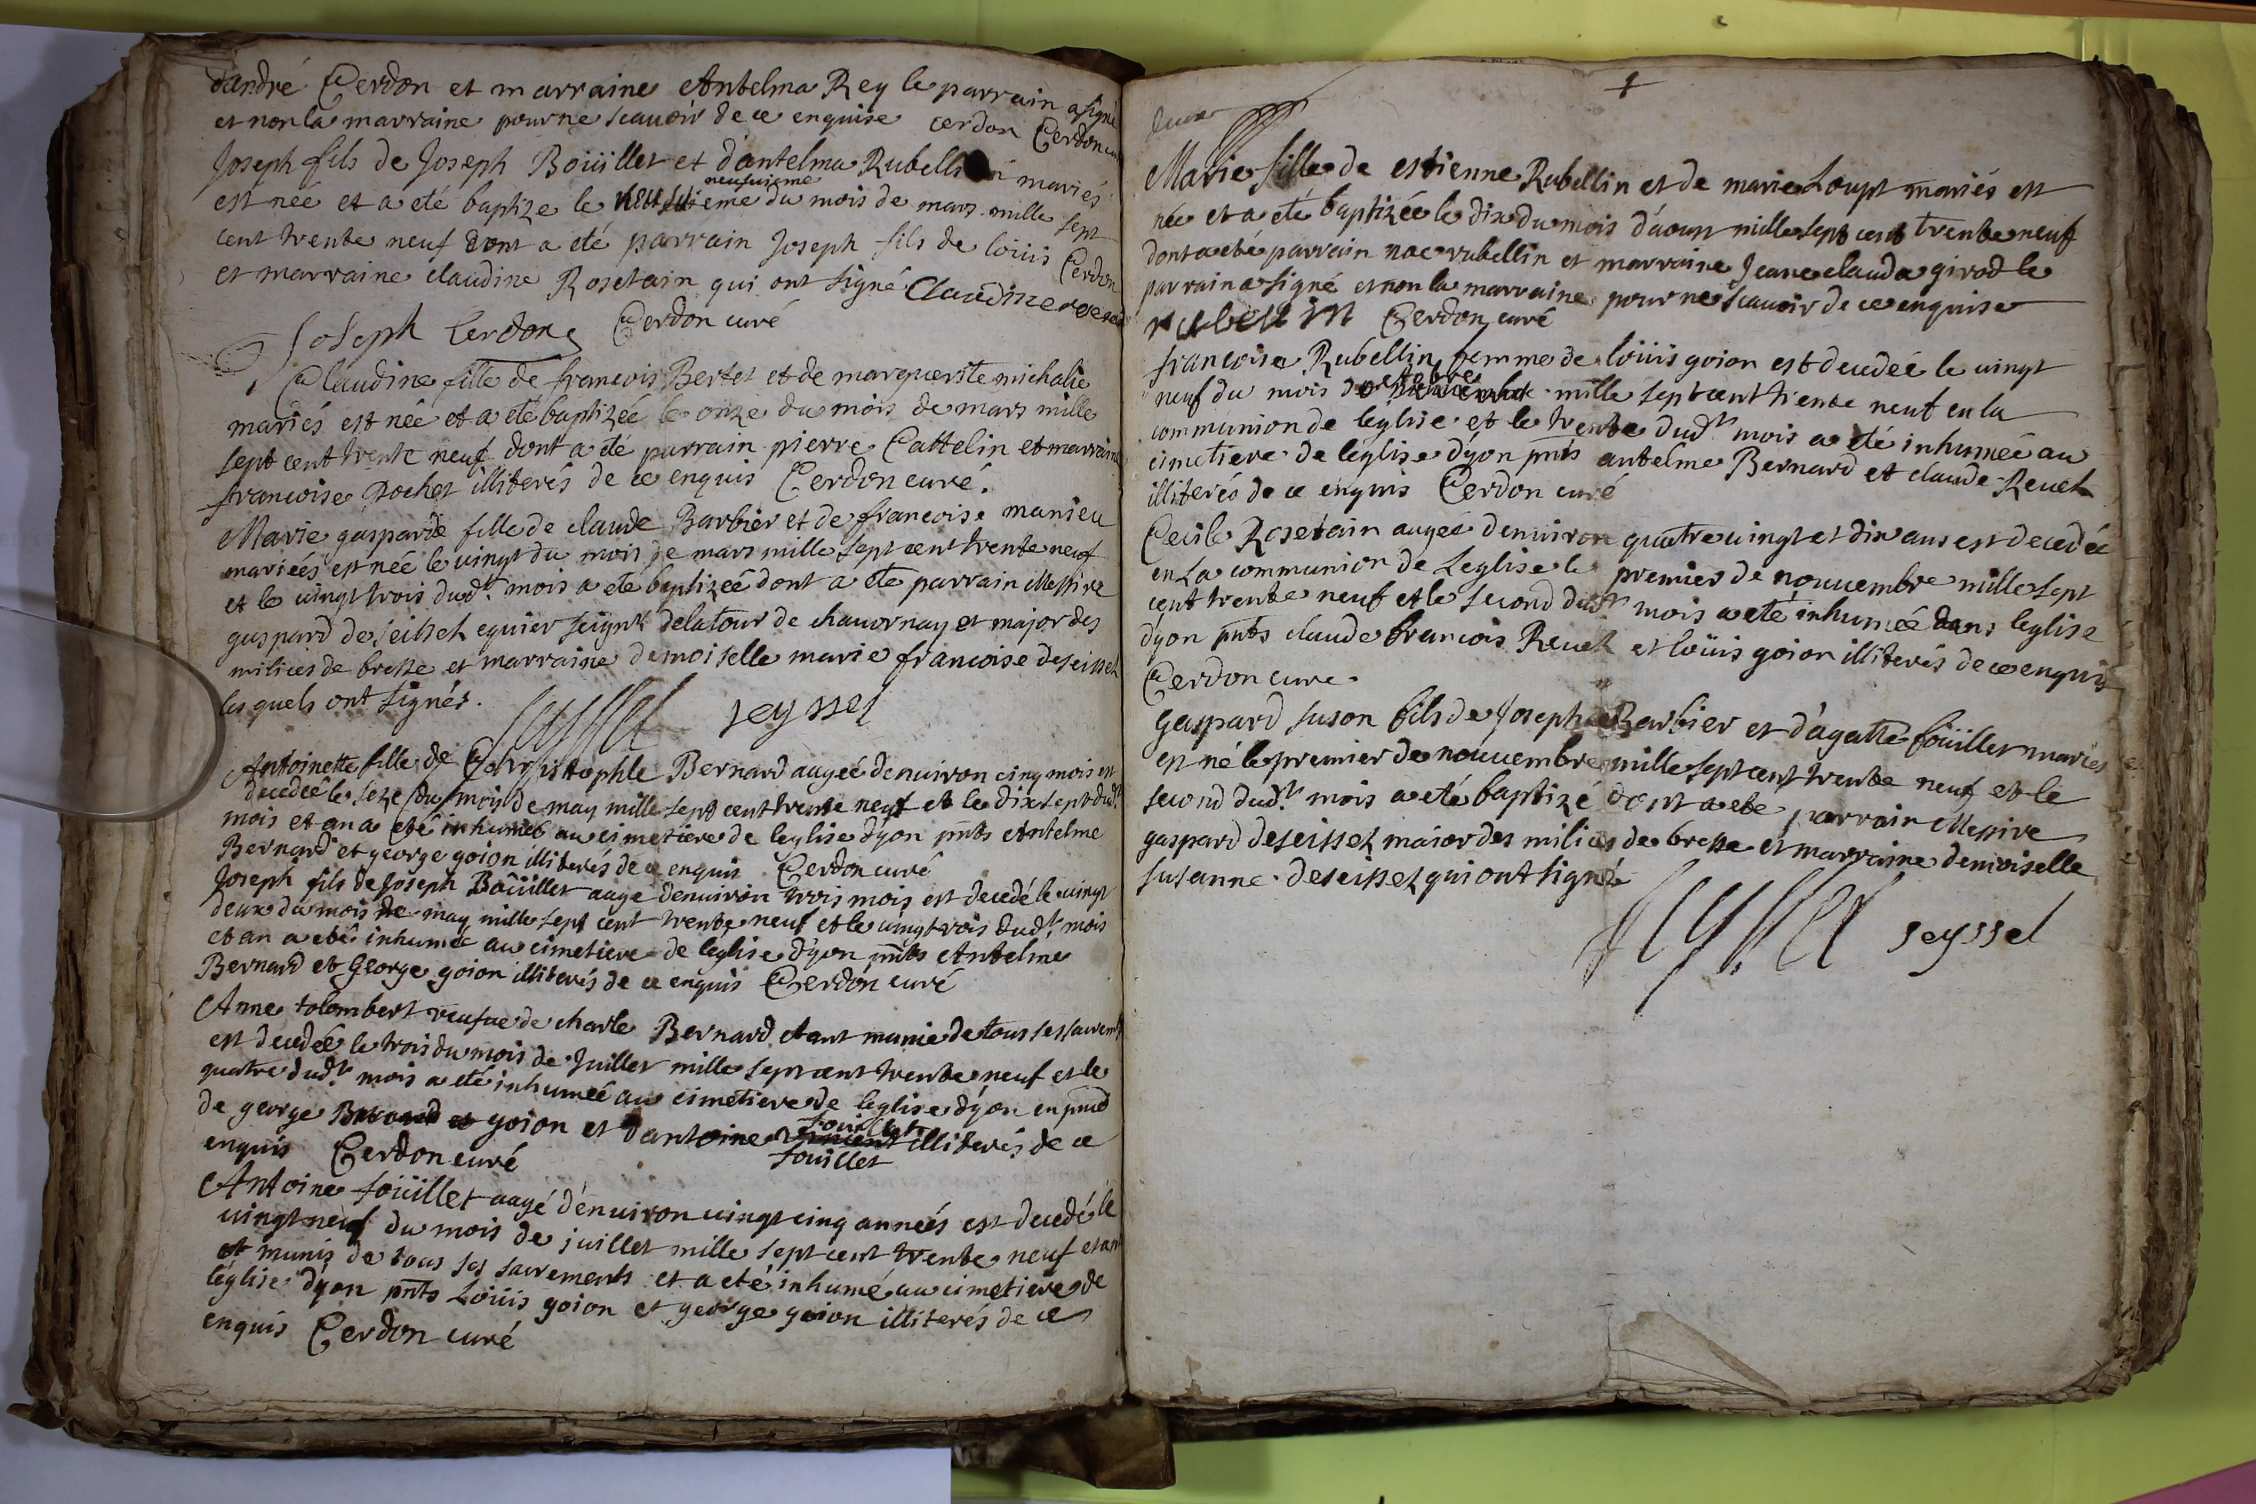 dandré Cerdon et marraine Antelma Rey le parrain a signé
et non la marraine pour ne scauoir de ce enquise cerdon Cerdon curé
Joseph fils de Joseph Boüillet et dantelma Rubellin mariés
est née et a eté baptize le neufuieme du mois de mars mille sept
cent trente neuf dont a eté parrain Joseph fils de loüis Cerdon
et marraine claudine Rosetain qui ont signé Claudine rosetain
Joseph Cerdon Cerdon curé
Claudine fille de francois Bertet et de marguerite michalie
mariés est née et a eté baptizée le onze du mois de mars mille
sept cent trente neuf dont a eté parrain pierre Cattelin et marraine
francoise pochet illiterés de ce enquis Cerdon curé.
Marie gasparde fille de claude Barbier et de francoise manieu
mariéés est née le uingt du mois de mars mille sept cent trente neuf
et le uingt trois dudt. mois a eté baptizée dont a eté parrain Messire
gaspard de seissel equier seignr delatour de chauornay et major des
milices de bresse et marraine demoiselle marie francoise deseissel
lesquels ont signés.
seyssel seyssel
Antoinette fille de Christophle Bernard augeé denuiron cinq mois est
decedée le seze du mois de may mille sept cent trente neuf et le dix sept dudt.
mois et an a eté inhumée au cimetiere de leglise dyon pnts Antelme
Bernard et george goion illiterés de ce enquis Cerdon curé
Joseph fils de Joseph Boüillet auge denuiron trois mois est decedé le uingt
deux du mois de may mille sept cent trente neuf et le uingt trois dudt. mois
et an a eté inhumée au cimetiere de leglise dyon pnts Antelme
Bernard et George goion illiterés de ce enquis Cerdon curé
Anne tolombert veufue de charle Bernard etant munie de tous ses sacremts
est decedée le trois du mois de Juillet mille sept cent trente neuf et le
quatre dudt. mois a eté inhumée au cimetiere de leglise dyon en pnce
de george Bernard et goion et dantoine foüillet illiterés de ce
enquis Cerdon curé foüillet
Antoine foüillet aagé dénuiron uingt cinq années est decedé le
uingt neuf du mois de juillet mille sept cent trente neuf etant
et munis de tous ses sacrements et a eté inhumé au cimetiere de
léglise dyon pnts Loüis goion et george goion illiterés de ce
enquis Cerdon curé
deux
Marie fille de estienne Rubellin et de marie Loupt mariés est
née et a eté baptizée le dix du mois d'aoust mille sept cent trente neuf
dont a eté parrain rubellin et marraine Jeane clauda girod le
parrain a signé et non la marraine pour ne scauoir de ce enquise
rubellin Cerdon curé
francoise Rubellin femme de loüis goion est decedeé le uingt
neuf du mois doctobre mille sept cent trente neuf en la
communion de leglise et le trente dudt. mois a eté inhumeé au
cimetiere de leglise dyon pnts antelme Bernard et claude Reuel
illiterés de ce enquis Cerdon curé
Cecile Rosetain augeé denuiron quatre uingt et dix ans est decedeé
en La communion de Leglise le premier de nouuembre mille sept
cent trente neuf et le second dudt. mois a eté inhumeé dans leglise
dyon pnts claude francois Reuel et loüis goion illiterés de ce enquis
Cerdon cure.
Gaspard suson fils de Joseph Barbier et d'agatte foüillet mariés
est né le premier de nouuembre mille sept cent trente neuf et le
second dudt. mois a eté baptizé dont a eté parrain Messire
gaspard deseissel maior des milices de bresse et marraine demoiselle
susanne deseissel qui ont signé
seyssel seyssel